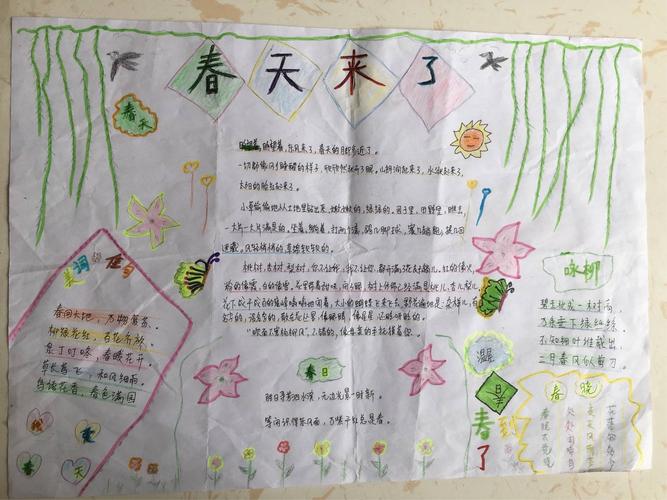 春天来了
春天
盼望着，东风来了，春天的脚步近了。
一切都像刚睡醒的样子，欣欣然张开了眼。山朗润起来了，水涨起来了，
太阳的脸红起来了。
小草偷偷地从土地里钻出来，嫩嫩的，绿绿的。园子里，田野里，瞧去，
一大片一大片满是的。坐着，躺着，打两个滚，踢几脚球，赛几趟跑，捉几回
迷藏。风轻悄悄的，草绵软软的。
桃树，杏树，梨树，你不让我，我不让你，都开满了花赶趟儿。红的像火，
粉的像霞，白的像雪。
花下成千成百的蜜蜂嗡嗡地闹着，大小的蝴蝶飞来飞去。野花遍地是：
“吹面不寒杨柳风”，不错的，像母亲的手抚摸着你。
美词佳句
春回大地，万物复苏。
柳绿花红，百花齐放。
泉丁叮咚，春暖花开。
草长莺飞，和风细雨。
鸟语花香，春色满园
我
爱
春
天
春日
胜日寻芳泗水滨，无边光景一时新。
等闲识得东风面，万紫千红总是春。
咏柳
碧玉妆成一树高，
万条垂下绿丝绦。
不知细叶谁裁出，
二月春风似剪刀。
春到了
春晓
春眠不觉晓
处处闻啼鸟
夜来风雨声
花落知多少